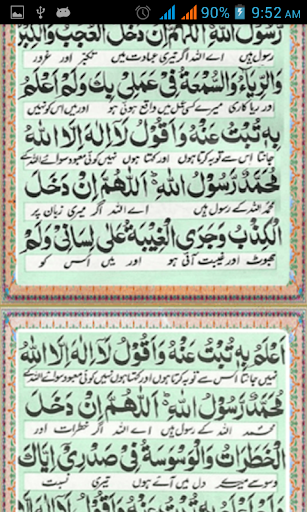 90% 9:52 AM
رَسُوْلُ اللّٰهِ اَللّٰهُمَّ اِنْ دَخَلَ الْعُجْبُ وَالْكِبْرُ
رسول ہیں اے اللہ اگر تیری عبادت میں تکبر اور غرور
وَالرِّيَاءُ وَالسُّمْعَةُ فِيْ عَمَلِيْ بِكَ وَلَمْ اَعْلَمْ
اور ریا کاری میرے کسی عمل میں واقع ہوئی ہو اور میں اس کو نہیں
بِهٖ تُبْتُ عَنْهُ وَاَقُوْلُ لَآ اِلٰهَ اِلَّا اللّٰهُ
جانتا اس سے توبہ کرتا ہوں اور کہتا ہوں نہیں کوئی معبود سوائے اللہ کے
مُحَمَّدٌ رَّسُوْلُ اللّٰهِ اَللّٰهُمَّ اِنْ دَخَلَ
محمد اللہ کے رسول ہیں اے اللہ اگر میری زبان پر
الْكِذْبُ وَجَرَى الْغِيْبَةُ عَلٰى لِسَانِيْ وَلَمْ
جھوٹ اور غیبت آتی ہو اور میں اس کو
اَعْلَمْ بِهٖ تُبْتُ عَنْهُ وَاَقُوْلُ لَآ اِلٰهَ اِلَّا اللّٰهُ
نہیں جانتا اس سے توبہ کرتا ہوں اور کہتا ہوں نہیں کوئی معبود سوائے اللہ کے
مُحَمَّدٌ رَّسُوْلُ اللّٰهِ اَللّٰهُمَّ اِنْ دَخَلَ
محمد اللہ کے رسول ہیں اے اللہ اگر خطرات اور
الْخَطَرَاتُ وَالْوَسْوَسَةُ فِيْ صَدْرِيْ اِيَّاكَ
وسوسے میرے دل میں آتے ہوں تیری نسبت
وَلَمْ اَعْلَمْ بِهٖ تُبْتُ عَنْهُ وَاَقُوْلُ لَآ اِلٰهَ